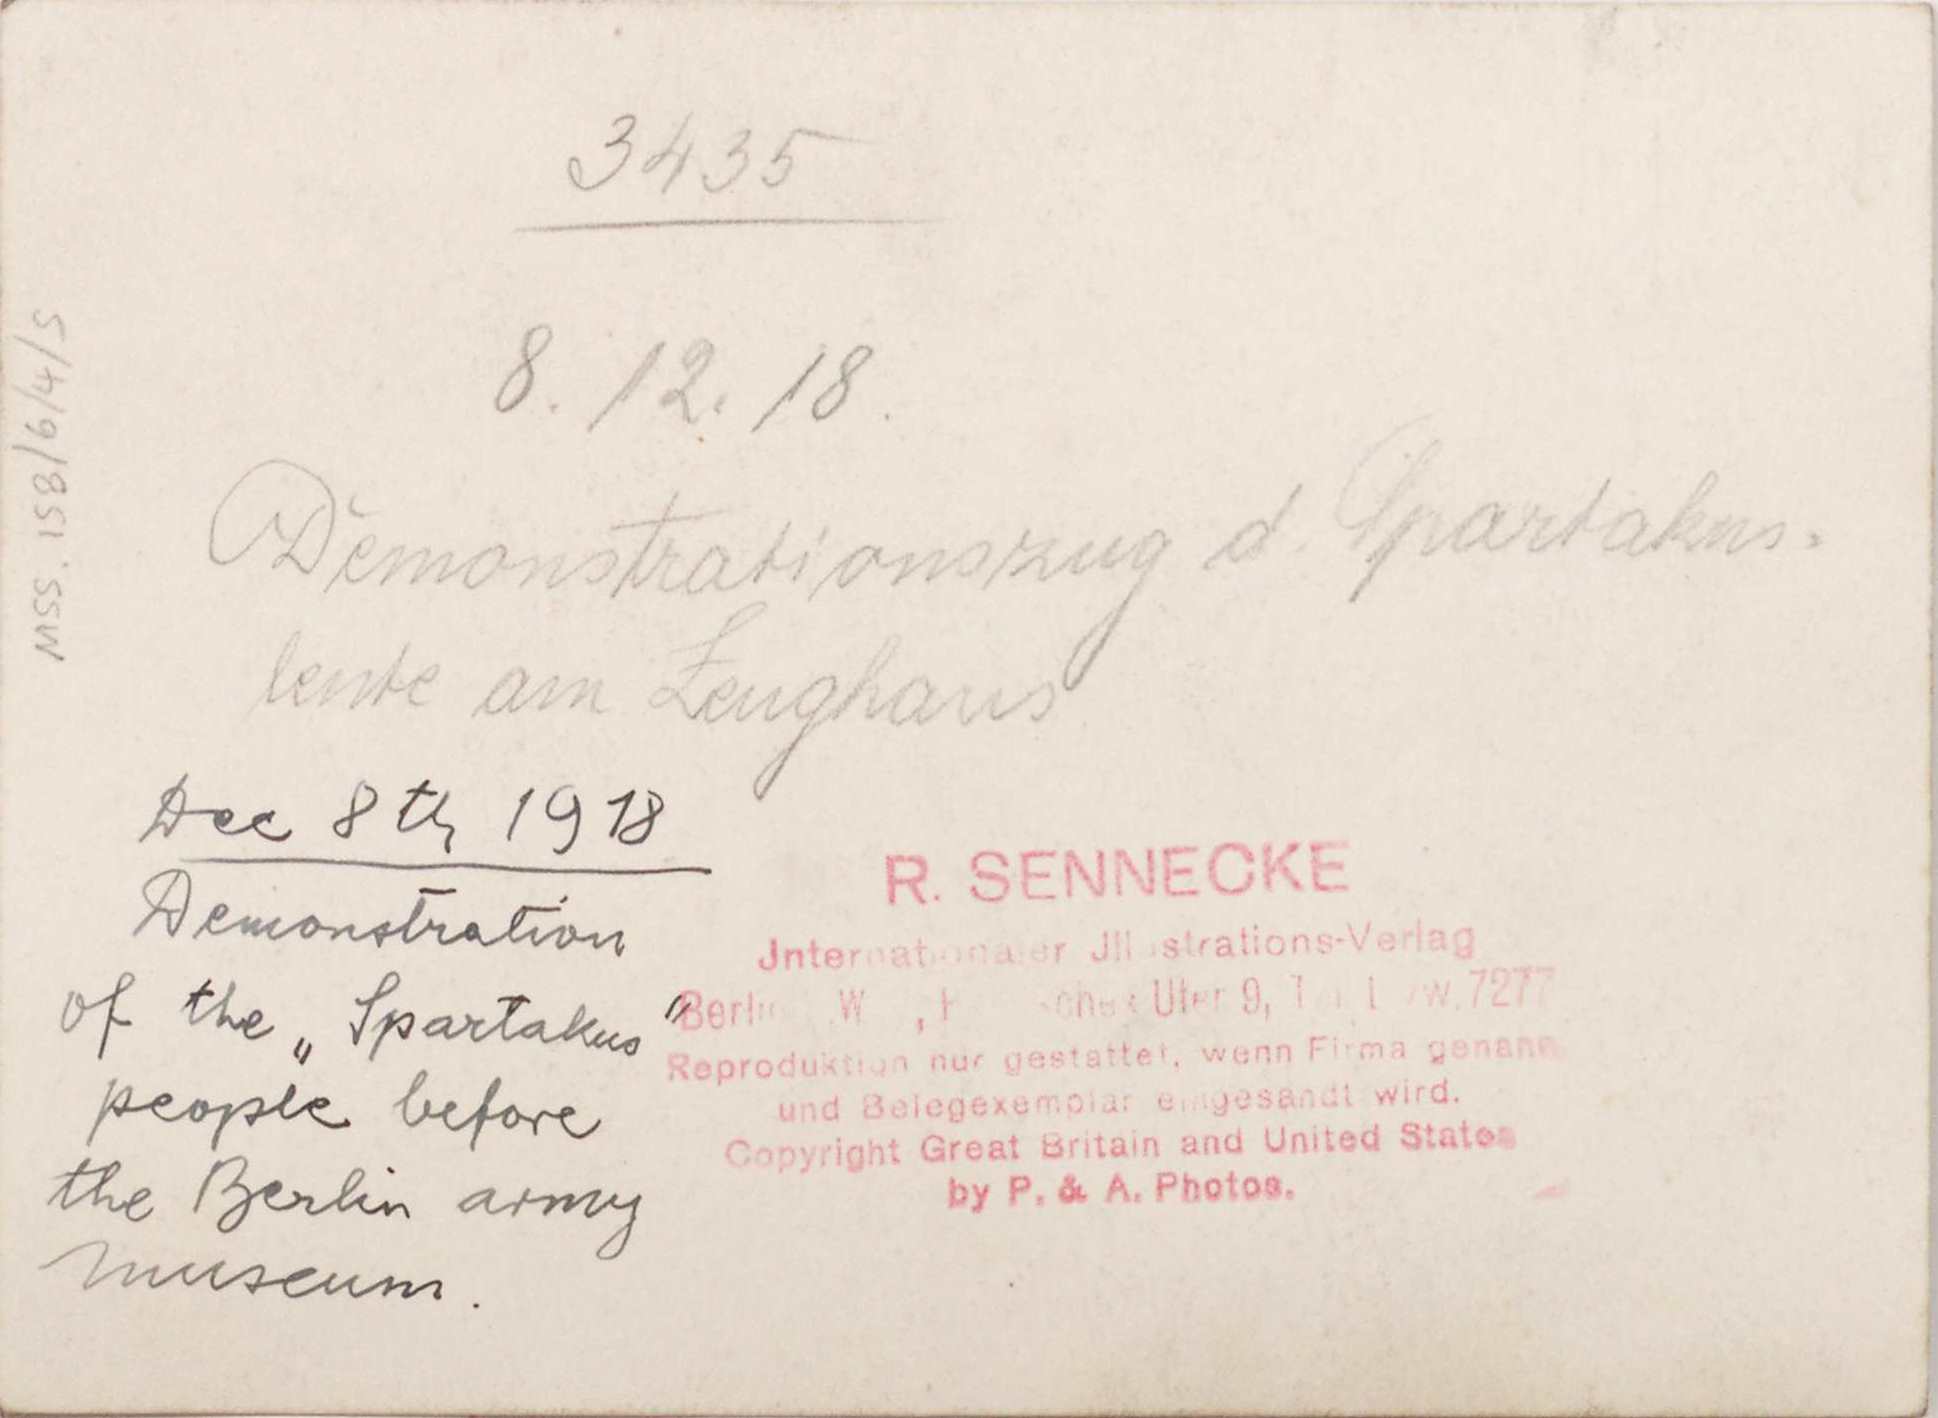 3435
8. 12. 18.
Demonstrationszug d. Spartakus-
leute am Zeughaus
MSS. 158/6/4/5
Dec 8th 1918
Demonstration
of the „Spartakus"
people before
the Berlin army
museum.
R. SENNECKE
Jnternationaler Jllustrations-Verlag
Berlin W , Ufer 9, 7277
Reproduktion nur gestattet, wenn Firma genannt
und Belegexemplar eingesandt wird.
Copyright Great Britain and United States
by P. & A. Photos.